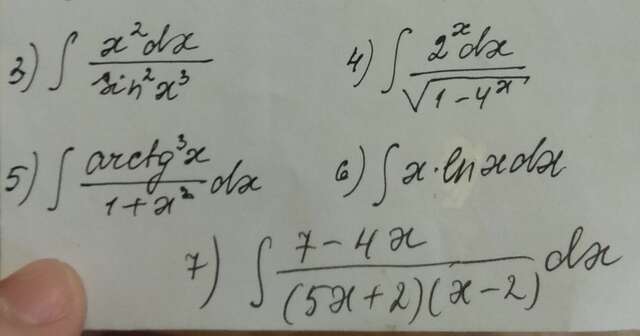 3) ∫ x²dx / sin²x³ 4) ∫ 2ˣdx / √(1-4ˣ)
5) ∫ arctg³x / 1+x² dx 6) ∫x·lnxdx
7) ∫ 7-4x / (5x+2)(x-2) dx